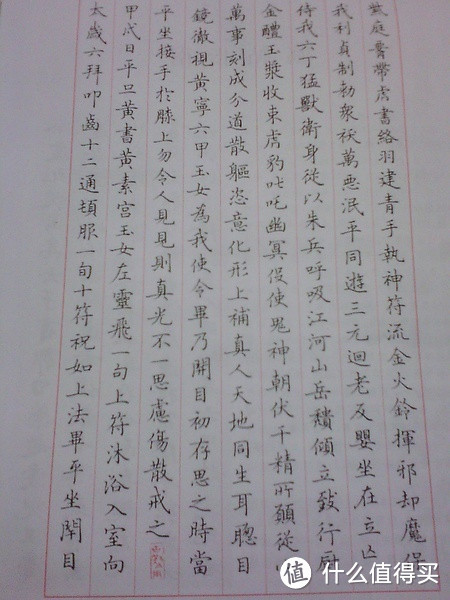 庭腰帶虎書絡羽建青手執神符流金火鈴揮邪却魔保
我利貞制勑眾祅萬惡泯平同遊三元迴老反嬰坐在立亡
侍我六丁猛獸衛身從以朱兵呼吸江河山岳頹傾立致行厨
金醴玉漿收束虎豹叱吒幽冥役使鬼神朝伏千精所願從心
萬事刻成分道散軀恣意化形上補真人天地同生耳聰目
鏡徹視黃寧六甲玉女為我使令畢乃開目初存思之時當
平坐接手於膝上勿令人見見則真光不一思慮傷散戒之
甲戌日平旦黃書黃素宮玉女左靈飛一旬上符沐浴入室向
太歲六拜叩齒十二通頓服一旬十符祝如上法畢平坐閉目
值 什么值得买